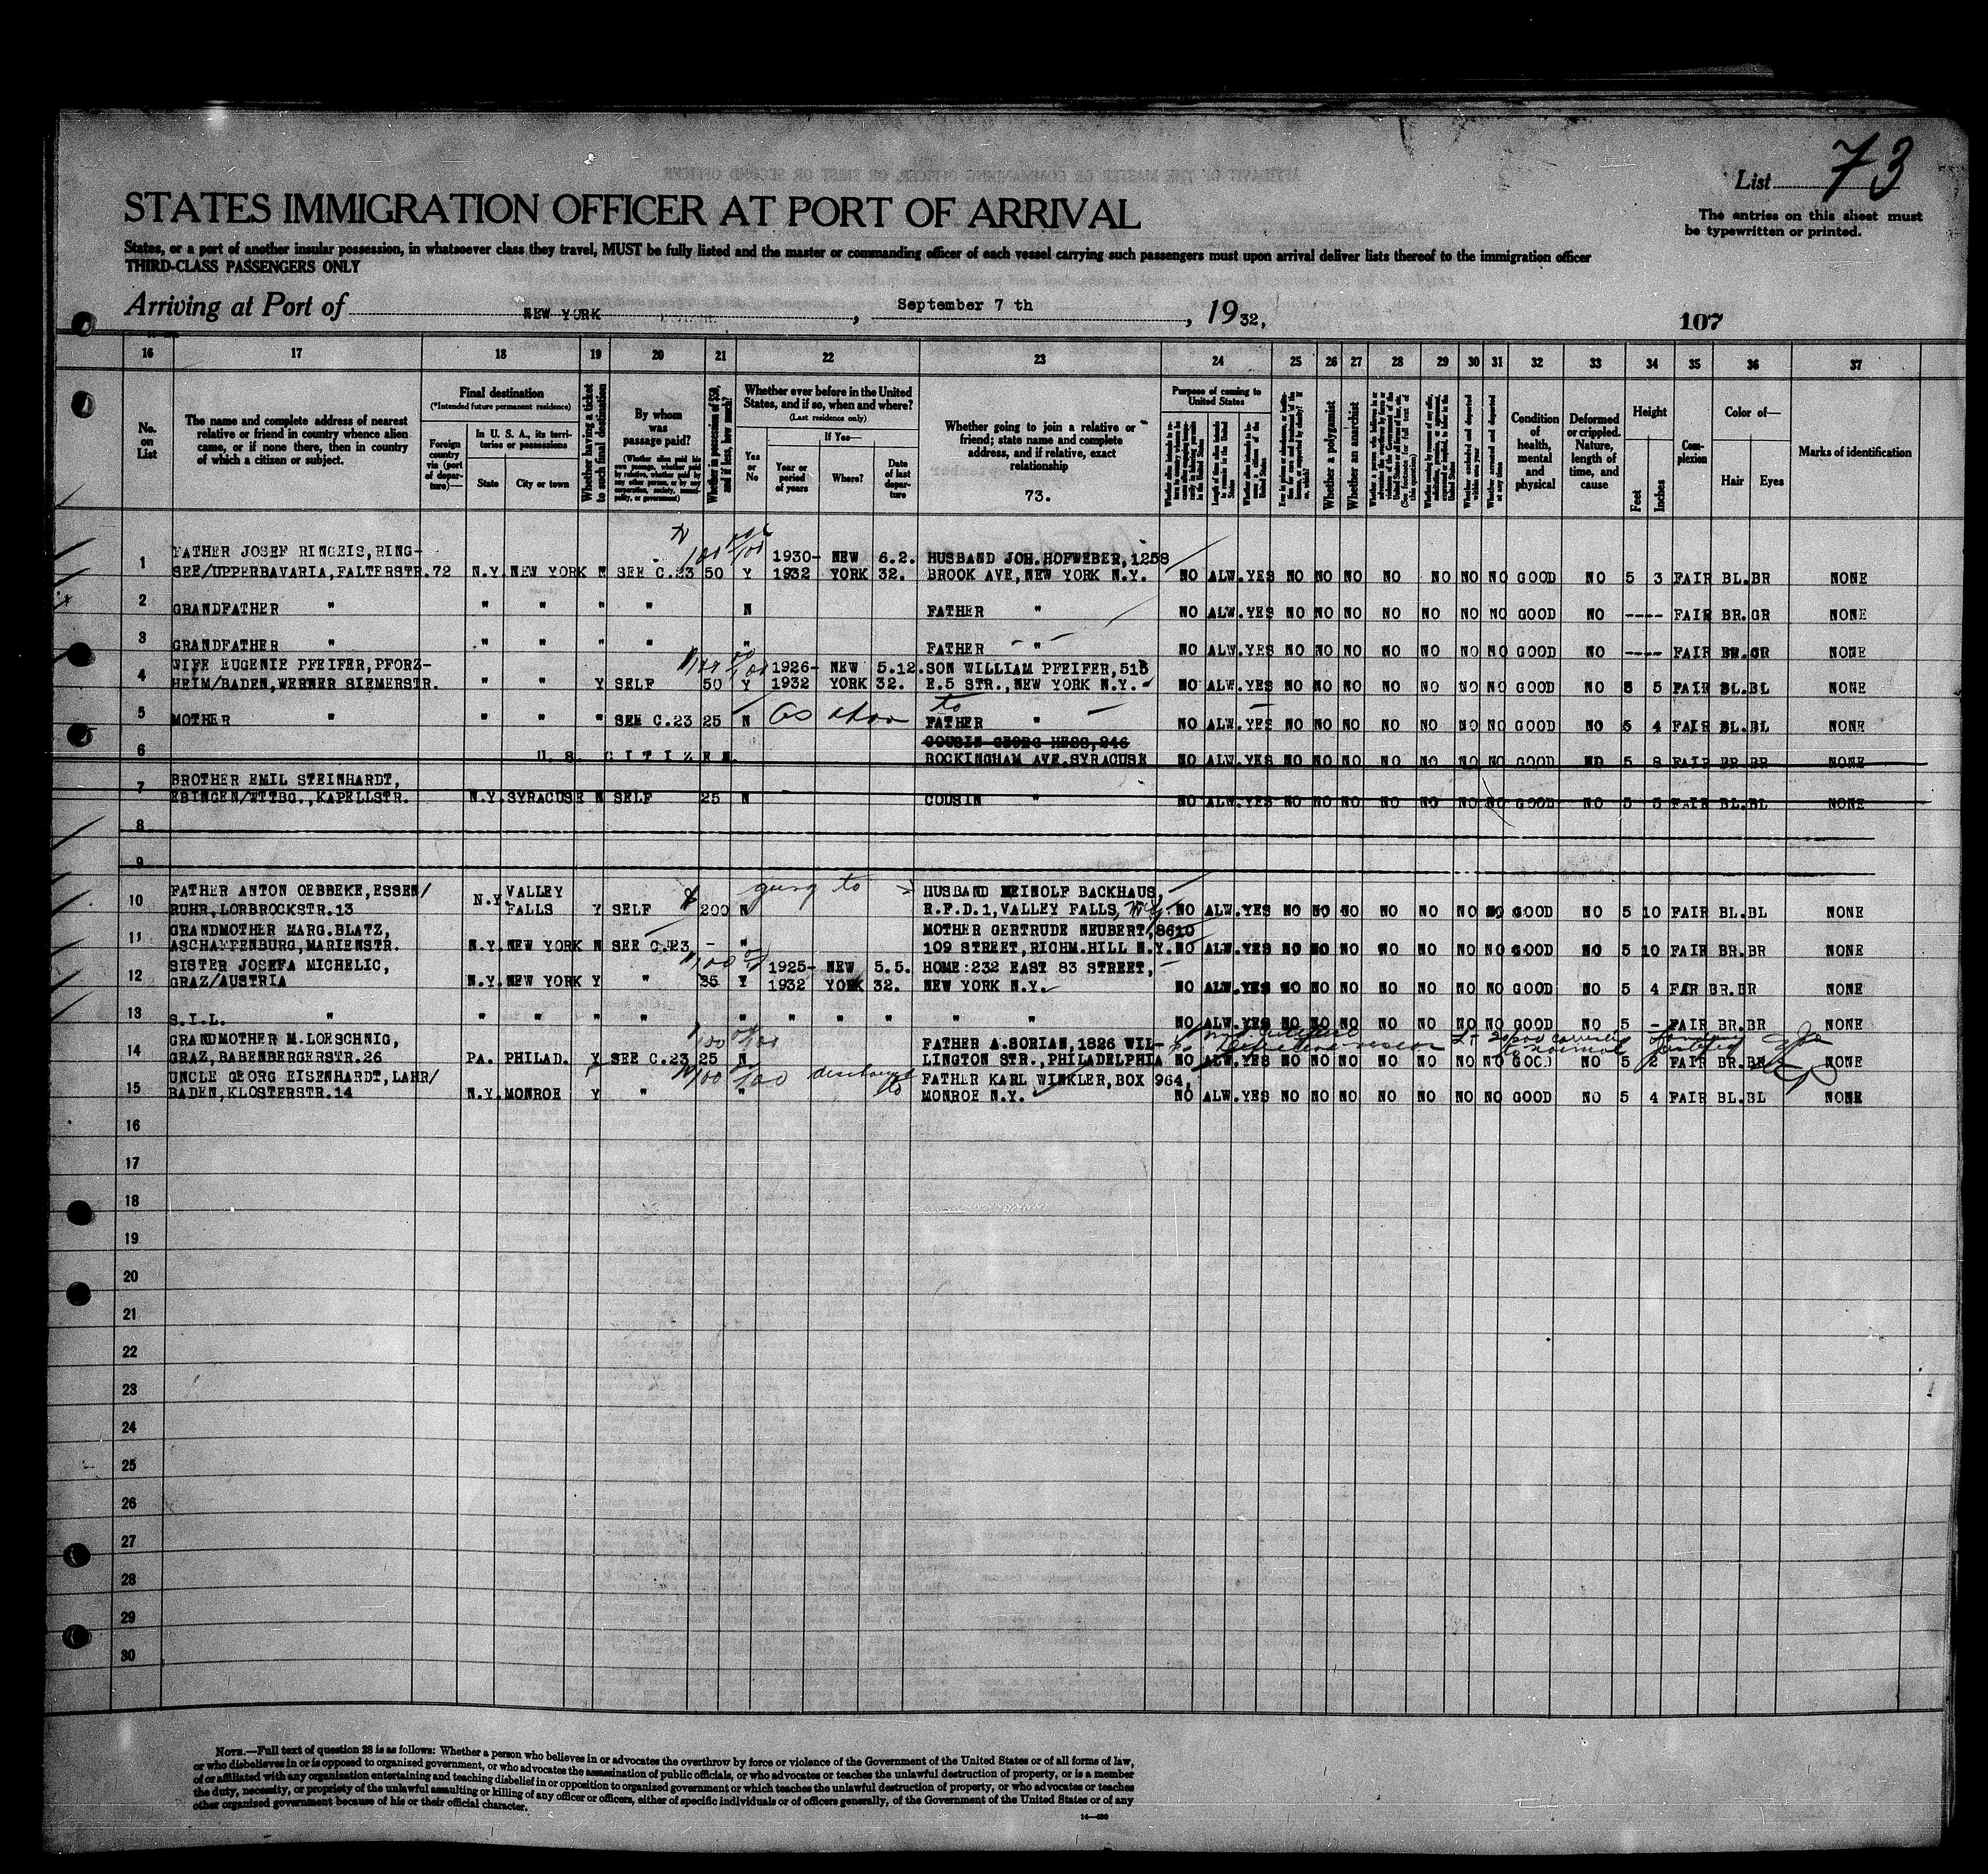 List 73
The entries on this sheet must
be typewritten or printed.
STATES IMMIGRATION OFFICER AT PORT OF ARRIVAL
States, or a port of another insular possession, in whatsoever class they travel, MUST be fully listed and the master or commanding officer of each vessel carrying such passengers must upon arrival deliver lists thereof to the immigration officer
THIRD-CLASS PASSENGERS ONLY
Arriving at Port of NEW YORK, September 7 th, 1932,
107
16 17 18 19 20 21 22 23 24 25 26 27 28 29 30 31 32 33 34 35 36 37
No. on List
The name and complete address of nearest
relative or friend in country whence alien
came, or if none there, then in country
of which a citizen or subject.
Final destination
(*Intended future permanent residence)
Foreign country via (port of departure)—
In U. S. A., its territories or possessions
State
City or town
Whether having a ticket to such final destination
By whom was passage paid?
(Whether alien paid his own passage, whether paid by relative, whether paid by any other person, or by any corporation, society, municipality, or government)
Whether in possession of $50, and if less, how much?
Whether ever before in the United
States, and if so, when and where?
(Last residence only)
Yes or No
If Yes—
Year or period of years
Where?
Date of last departure
Whether going to join a relative or
friend; state name and complete
address, and if relative, exact
relationship
73.
Purpose of coming to United States
Whether a polygamist
Whether an anarchist
Condition of health, mental and physical
Deformed or crippled. Nature, length of time, and cause
Height
Feet
Inches
Complexion
Color of—
Hair
Eyes
Marks of identification
1 FATHER JOSEF RINGEIS, RING- 1930- NEW 6.2. HUSBAND JOH. HOFWEBER, 1258
SEE/UPPERBAVARIA, FALTERSTR. 72 N.Y. NEW YORK N SEE C.23 50 Y 1932 YORK 32. BROOK AVE, NEW YORK N.Y. NO ALW. YES NO NO NO NO NO NO NO GOOD NO 5 3 FAIR BL. BR NONE
2 GRANDFATHER " " " " " N FATHER " NO ALW. YES NO NO NO NO NO NO NO GOOD NO ---- FAIR BR. GR NONE
3 GRANDFATHER " " " " " " FATHER " NO ALW. YES NO NO NO NO NO NO NO GOOD NO ---- FAIR BR. GR NONE
4 WIFE EUGENIE PFEIFER, PFORZ- 1926- NEW 5.12. SON WILLIAM PFEIFER, 515
HEIM/BADEN, WERNER SIEMERSTR. " " Y SELF 50 Y 1932 YORK 32. E.5 STR., NEW YORK N.Y. NO ALW. YES NO NO NO NO NO NO NO GOOD NO 5 5 FAIR BL. BL NONE
to
5 MOTHER " " " " SEE C.23 25 N FATHER " NO ALW. YES NO NO NO NO NO NO NO GOOD NO 5 4 FAIR BL. BL NONE
COUSIN GEORG HESS, 246
6 U. S. C I T I Z E N. ROCKINGHAM AVE. SYRACUSE NO ALW. YES NO NO NO NO NO NO NO GOOD NO 5 8 FAIR BR BR NONE
7 BROTHER EMIL STEINHARDT,
EBINGEN/WTTBG., KAPELLSTR. N.Y. SYRACUSE N SELF 25 N COUSIN " NO ALW. YES NO NO NO NO NO NO NO GOOD NO 5 5 FAIR BL. BL NONE
8
9
10 FATHER ANTON OEBBEKE, ESSEN/ VALLEY going to HUSBAND MEINOLF BACKHAUS,
RUHR, LORBROCKSTR. 13 N.Y. FALLS Y SELF 200 N R.F.D. 1, VALLEY FALLS, N.Y. NO ALW. YES NO NO NO NO NO NO NO GOOD NO 5 10 FAIR BL. BL NONE
11 GRANDMOTHER MARG. BLATZ, MOTHER GERTRUDE NEUBERT, 8610
ASCHAFFENBURG, MARIENSTR. N.Y. NEW YORK N SEE C.23 - " 109 STREET, RICHM. HILL N.Y. NO ALW. YES NO NO NO NO NO NO NO GOOD NO 5 10 FAIR BR. BR NONE
12 SISTER JOSEFA MICHELIC, 1925- NEW 5.5. HOME: 232 EAST 83 STREET,
GRAZ/AUSTRIA N.Y. NEW YORK Y " 25 Y 1932 YORK 32. NEW YORK N.Y. NO ALW. YES NO NO NO NO NO NO NO GOOD NO 5 4 FAIR BR. BR NONE
13 S.I.L. " " " " " " " " " " " " NO ALW. YES NO NO NO NO NO NO NO GOOD NO 5 - FAIR BR. BR NONE
14 GRANDMOTHER M. LORSCHNIG, FATHER A. SORIAN, 1826 WIL-
GRAZ, BABENBERGERSTR. 26 PA. PHILAD. Y SEE C.23 25 N LINGTON STR., PHILADELPHIA NO ALW. YES NO NO NO NO NO NO NO GOOD NO 5 2 FAIR BR. BR NONE
15 UNCLE GEORG EISENHARDT, LAHR/ FATHER KARL WINKLER, BOX 964,
BADEN, KLOSTERSTR. 14 N.Y. MONROE Y " " MONROE N.Y. NO ALW. YES NO NO NO NO NO NO NO GOOD NO 5 4 FAIR BL. BL NONE
16
17
18
19
20
21
22
23
24
25
26
27
28
29
30
NOTE.—Full text of question 28 is as follows: Whether a person who believes in or advocates the overthrow by force or violence of the Government of the United States or of all forms of law,
or who disbelieves in or is opposed to organized government, or who advocates the assassination of public officials, or who advocates or teaches the unlawful destruction of property, or is a member
of or affiliated with any organization entertaining and teaching disbelief in or opposition to organized government or which teaches the unlawful destruction of property, or who advocates or teaches
the duty, necessity, or propriety of the unlawful assaulting or killing of any officer or officers, either of specific individuals or of officers generally, of the Government of the United States or of any
other organized government because of his or their official character.